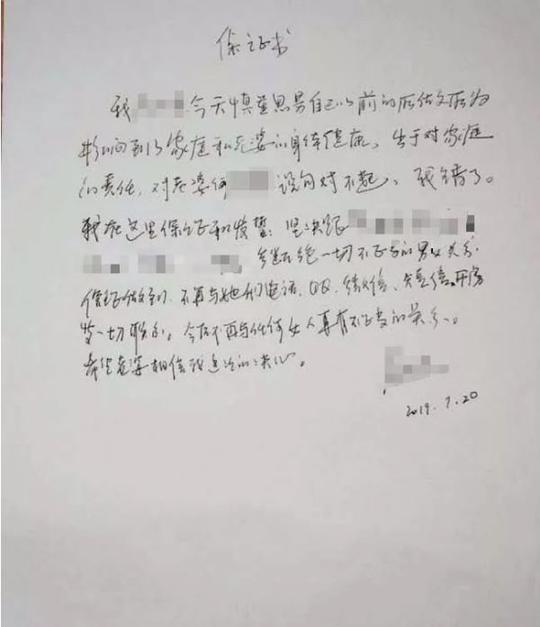 保证书
我 今天慎重思考自己以前的所做所为
影响到了家庭和老婆的身体健康,出于对家庭
的责任,对老婆何 说句对不起、我错了。
我在这里保证和发誓:坚决跟
断绝一切不正当的男女关系
保证做到不再与她们电话、QQ、微信、短信、开房
等一切联系。今后不再与任何女人再有不正当的关系。
希望老婆相信我这次的决心。
2019.7.20